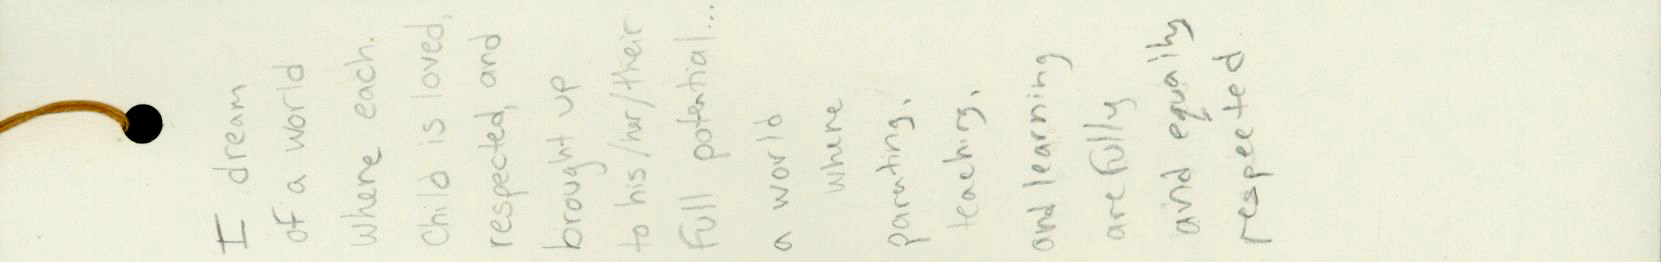 I dream
of a world
where each
child is loved,
respected, and
brought up
to his/her/their
full potential...
a world
where
parenting,
teaching,
and learning
are fully
and equally
respected.